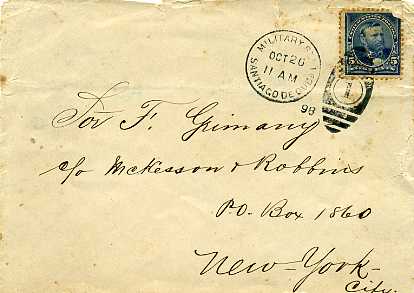 MILITARY STA. 1
OCT 26
11 AM
SANTIAGO DE CUBA
98
1
5 5
Sor F. Grimany
c/o McKesson & Robbins
P.O. Box 1860
New-York-
City.